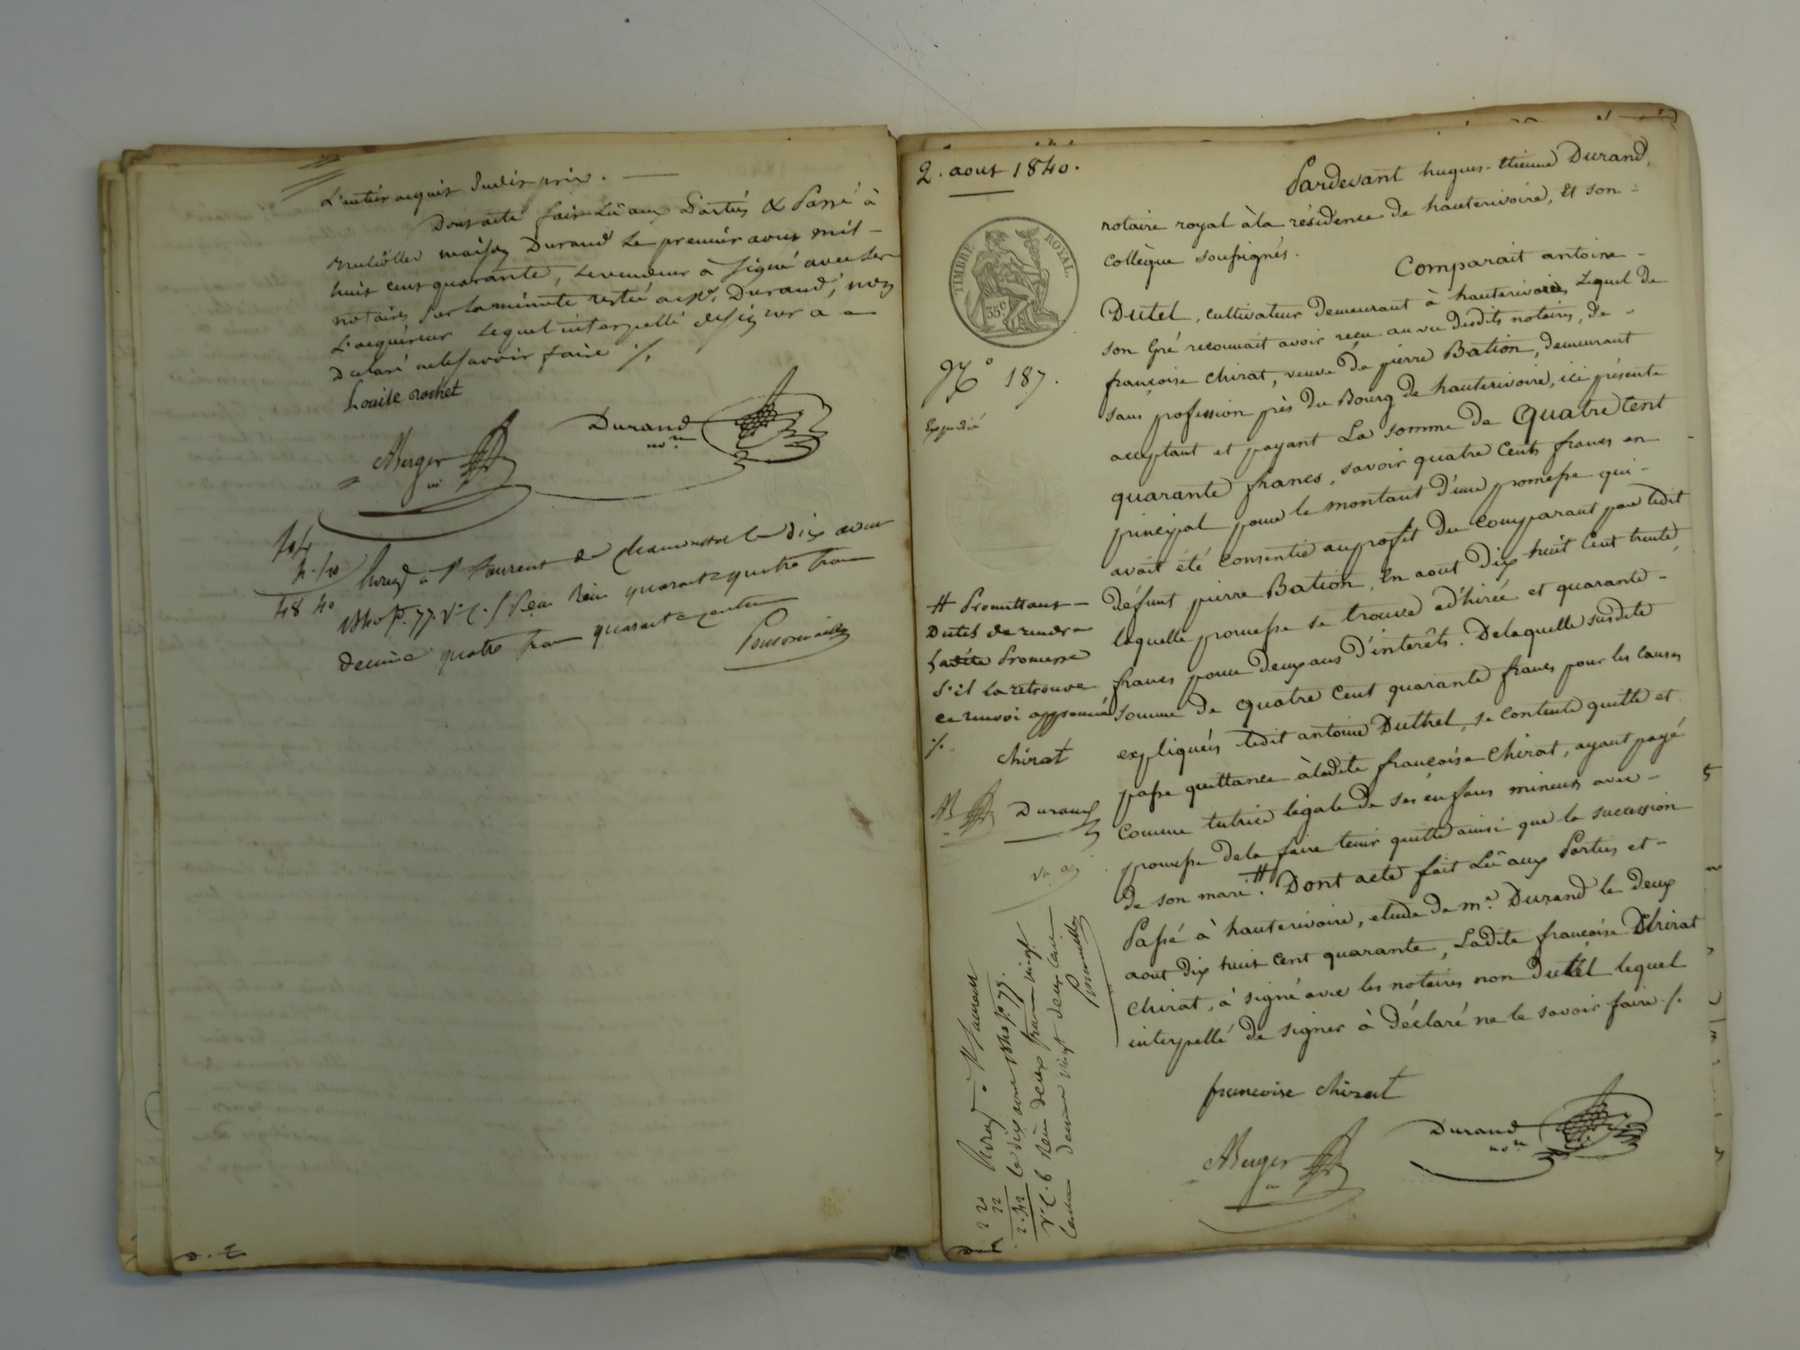 L'entier acquis dudit prix.
Dont acte fait Lû aux Parties & Passé à
maison Durand Le premier aout mil-
huit cent quarante, Le vendeur à signé avec les
notaires sur la minute restée a Me. Durand, non
L'acquéreur Lequel interpellé de signer a
Déclaré ne le savoir faire ./.
Louise rochet
Durand
nore.
Berger
44
4.40
48 40
Enregé à St. Laurent de Chamousset le dix aout
1840 fo. 77. Vo. C. 5 Reçu quarante quatre francs
decime quatre francs quarante centimes
2. aout 1840.
Pardevant hugues-Etienne Durand,
notaire royal à la résidence de hauterivoire, Et son-
Collègue soussignés.
Comparait antoine-
TIMBRE ROYAL.
35c.
Dutel, cultivateur Demeurant à hauterivoire, Lequel de
son Gré reconnait avoir reçu au vu desdits notaires, de-
No 187.
françoise Chirat, veuve de pierre Bation, demeurant
Expédié
sans profession près du Bourg de hauterivoire, ici présente
acceptant et payant La somme de Quatre Cent
quarante francs, savoir quatre Cents francs en
principal pour le montant d'une promesse qui-
avait été Consentie au profit du Comparant par ledit
défunt pierre Bation, En aout Dix huit Cent trente,
laquelle promesse se trouve adhirée et quarante-
francs pour deux ans d'interêts. De laquelle susdite
somme de quatre Cent quarante francs pour les Causes
expliquées ledit antoine Duthel, se Contente quitte et
passe quittance à ladite françoise Chirat, ayant payé
Comme tutrice légale de ses enfans mineurs avec-
promesse de la faire tenir quitte ainsi que la succession
de son mari. # Dont acte fait Lû aux Parties et-
Passé à hauterivoire, etude de me. Durand le deux
aout Dix huit Cent quarante, Ladite françoise Chirat
Chirat, à signé avec les notaires non Dutel lequel
interpellé de signer à déclaré ne le savoir faire ./.
# Promettant-
Dutel de rendre
Ladite Promesse
s'il la retrouve
ce renvoi approuvé
./.
Chirat
AB
Durand
francoise Chirat
Berger
Durand
nore
2 20
22
2.42
Enregé à St Laurent
le dix aout 1840 fo. 77.
Vo. C. 6 Reçu deux francs vingt
centimes decime vingt deux centimes